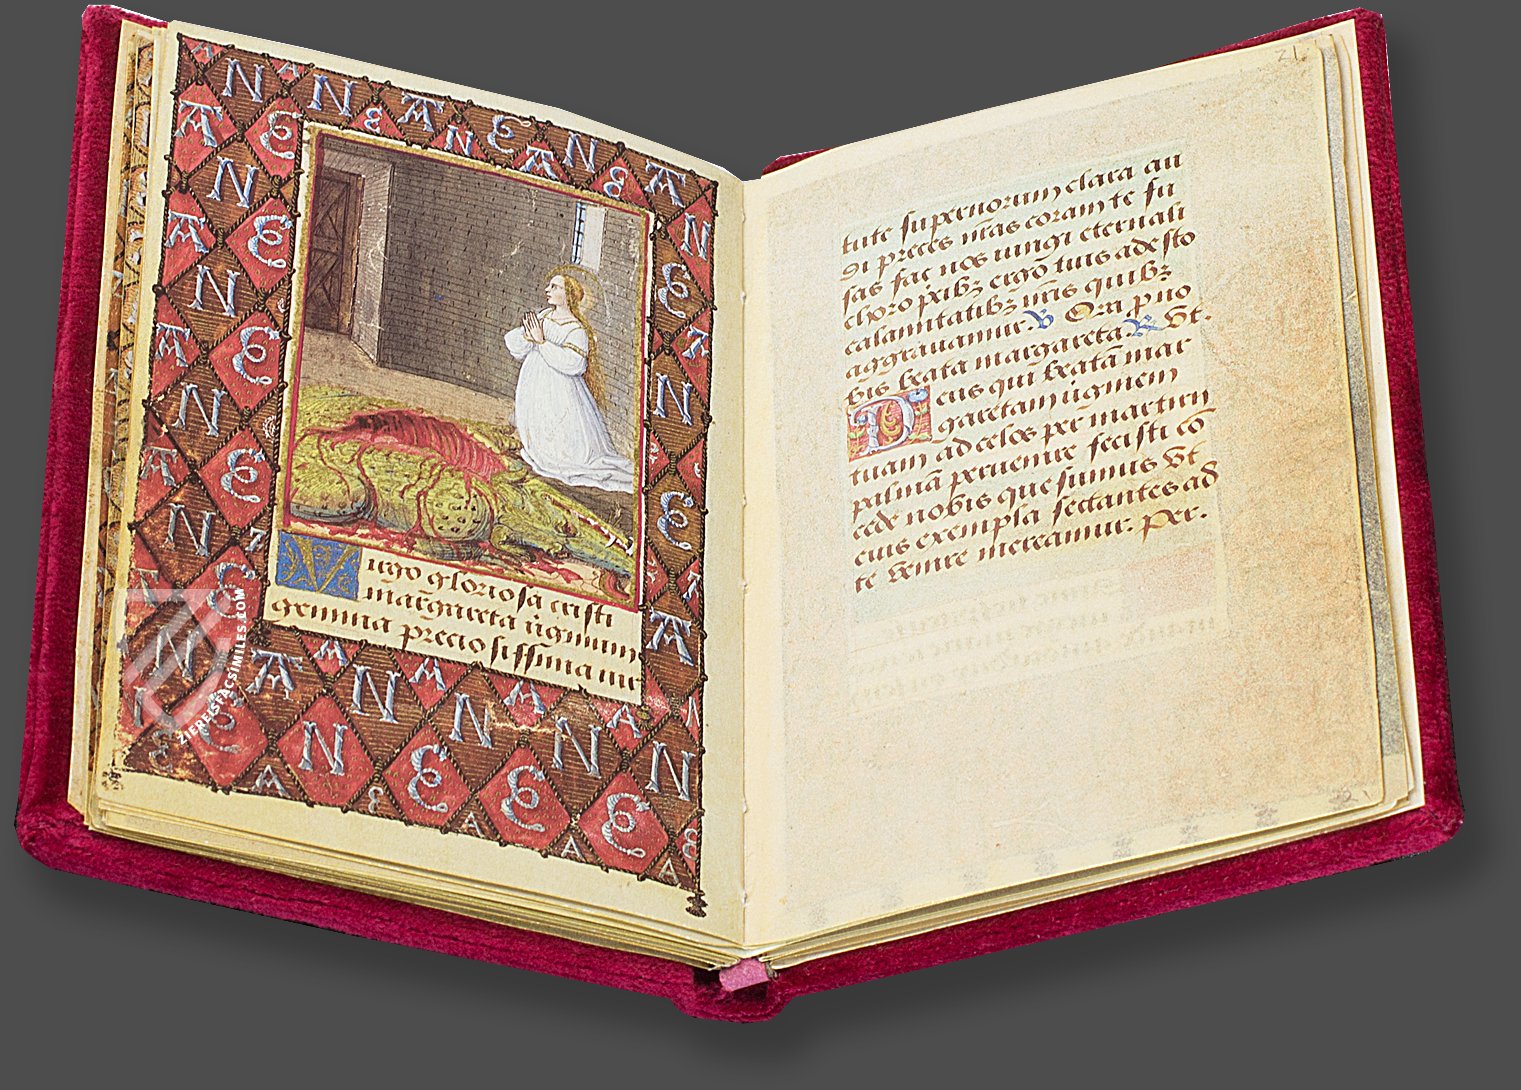 Virgo gloriosa cristi
margareta v̄ginum
gemma preciosissima me
21
tute supernorum clara au
di preces nr̄as coram te fu
sas fac nos iungi eternali
choro p̄cibꝫ ergō tuis adesto
calamitatibꝫ nr̄is quibꝫ
aggrauamur. V Ora p no
bis beata margareta. R Vt.
Deus qui beatā mar
garetam v̄ginem
tuam ad celos per martirij
palmā peruenire fecisti cō
cede nobis quesumus Vt
eius exempla sectantes ad
te venire mereamur. Per.
ZIEREISFACSIMILES.COM